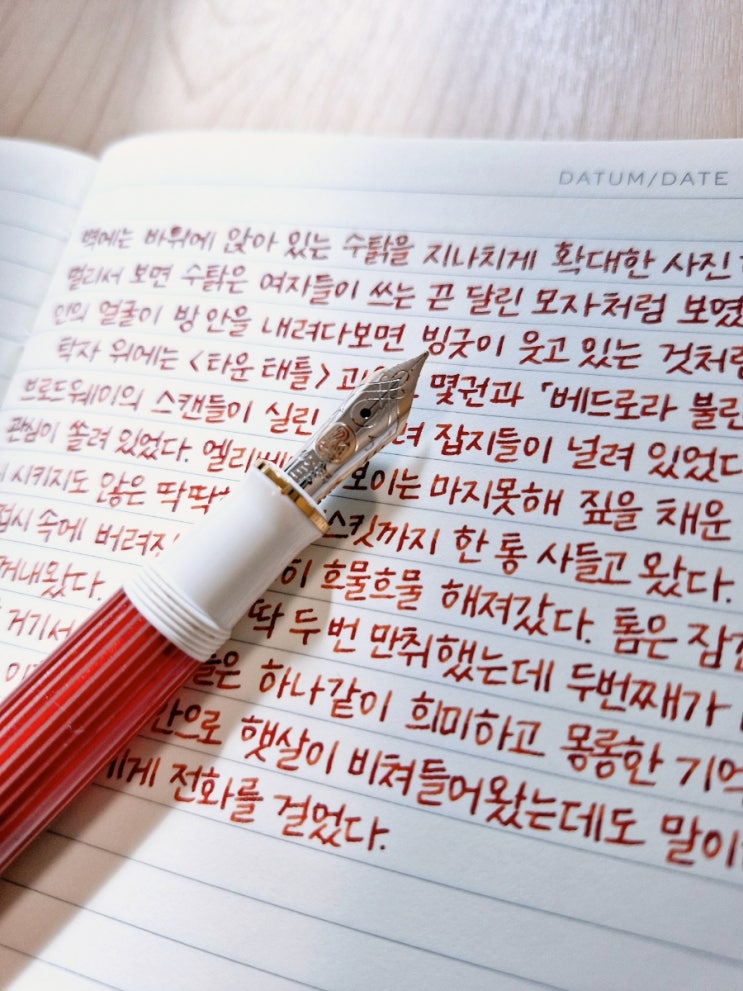 DATUM/DATE
벽에는 바위에 앉아 있는 수탉을 지나치게 확대한 사진
멀리서 보면 수탉은 여자들이 쓰는 끈 달린 모자처럼 보였
인의 얼굴이 방 안을 내려다보면 빙긋이 웃고 있는 것처럼
탁자 위에는 <타운 태틀> 몇권과 「베드로라 불린
브로드웨이의 스캔들이 실린 잡지들이 널려 있었다
관심이 쏠려 있었다. 보이는 마지못해 짚을 채운
시키지도 않은 까지 한 통 사들고 왔다.
접시 속에 흐물흐물 해져갔다. 톰은
꺼내왔다. 딱 두 번 만취했는데 두번째가
거기서 하나같이 희미하고 몽롱한
햇살이 비쳐들어왔는데도
에게 전화를 걸었다.